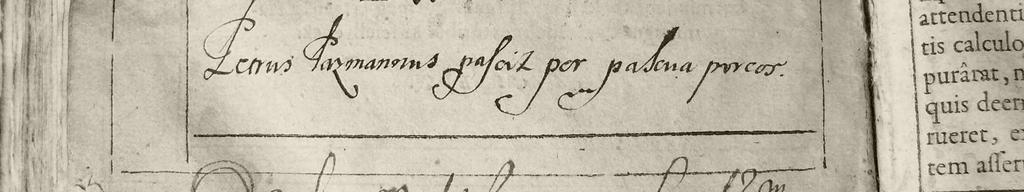 Petrus Pazmannus pascit per pascua porcos.
attendenti
tis calculo
purârat, n
quis deerr
rueret, e
tem assert